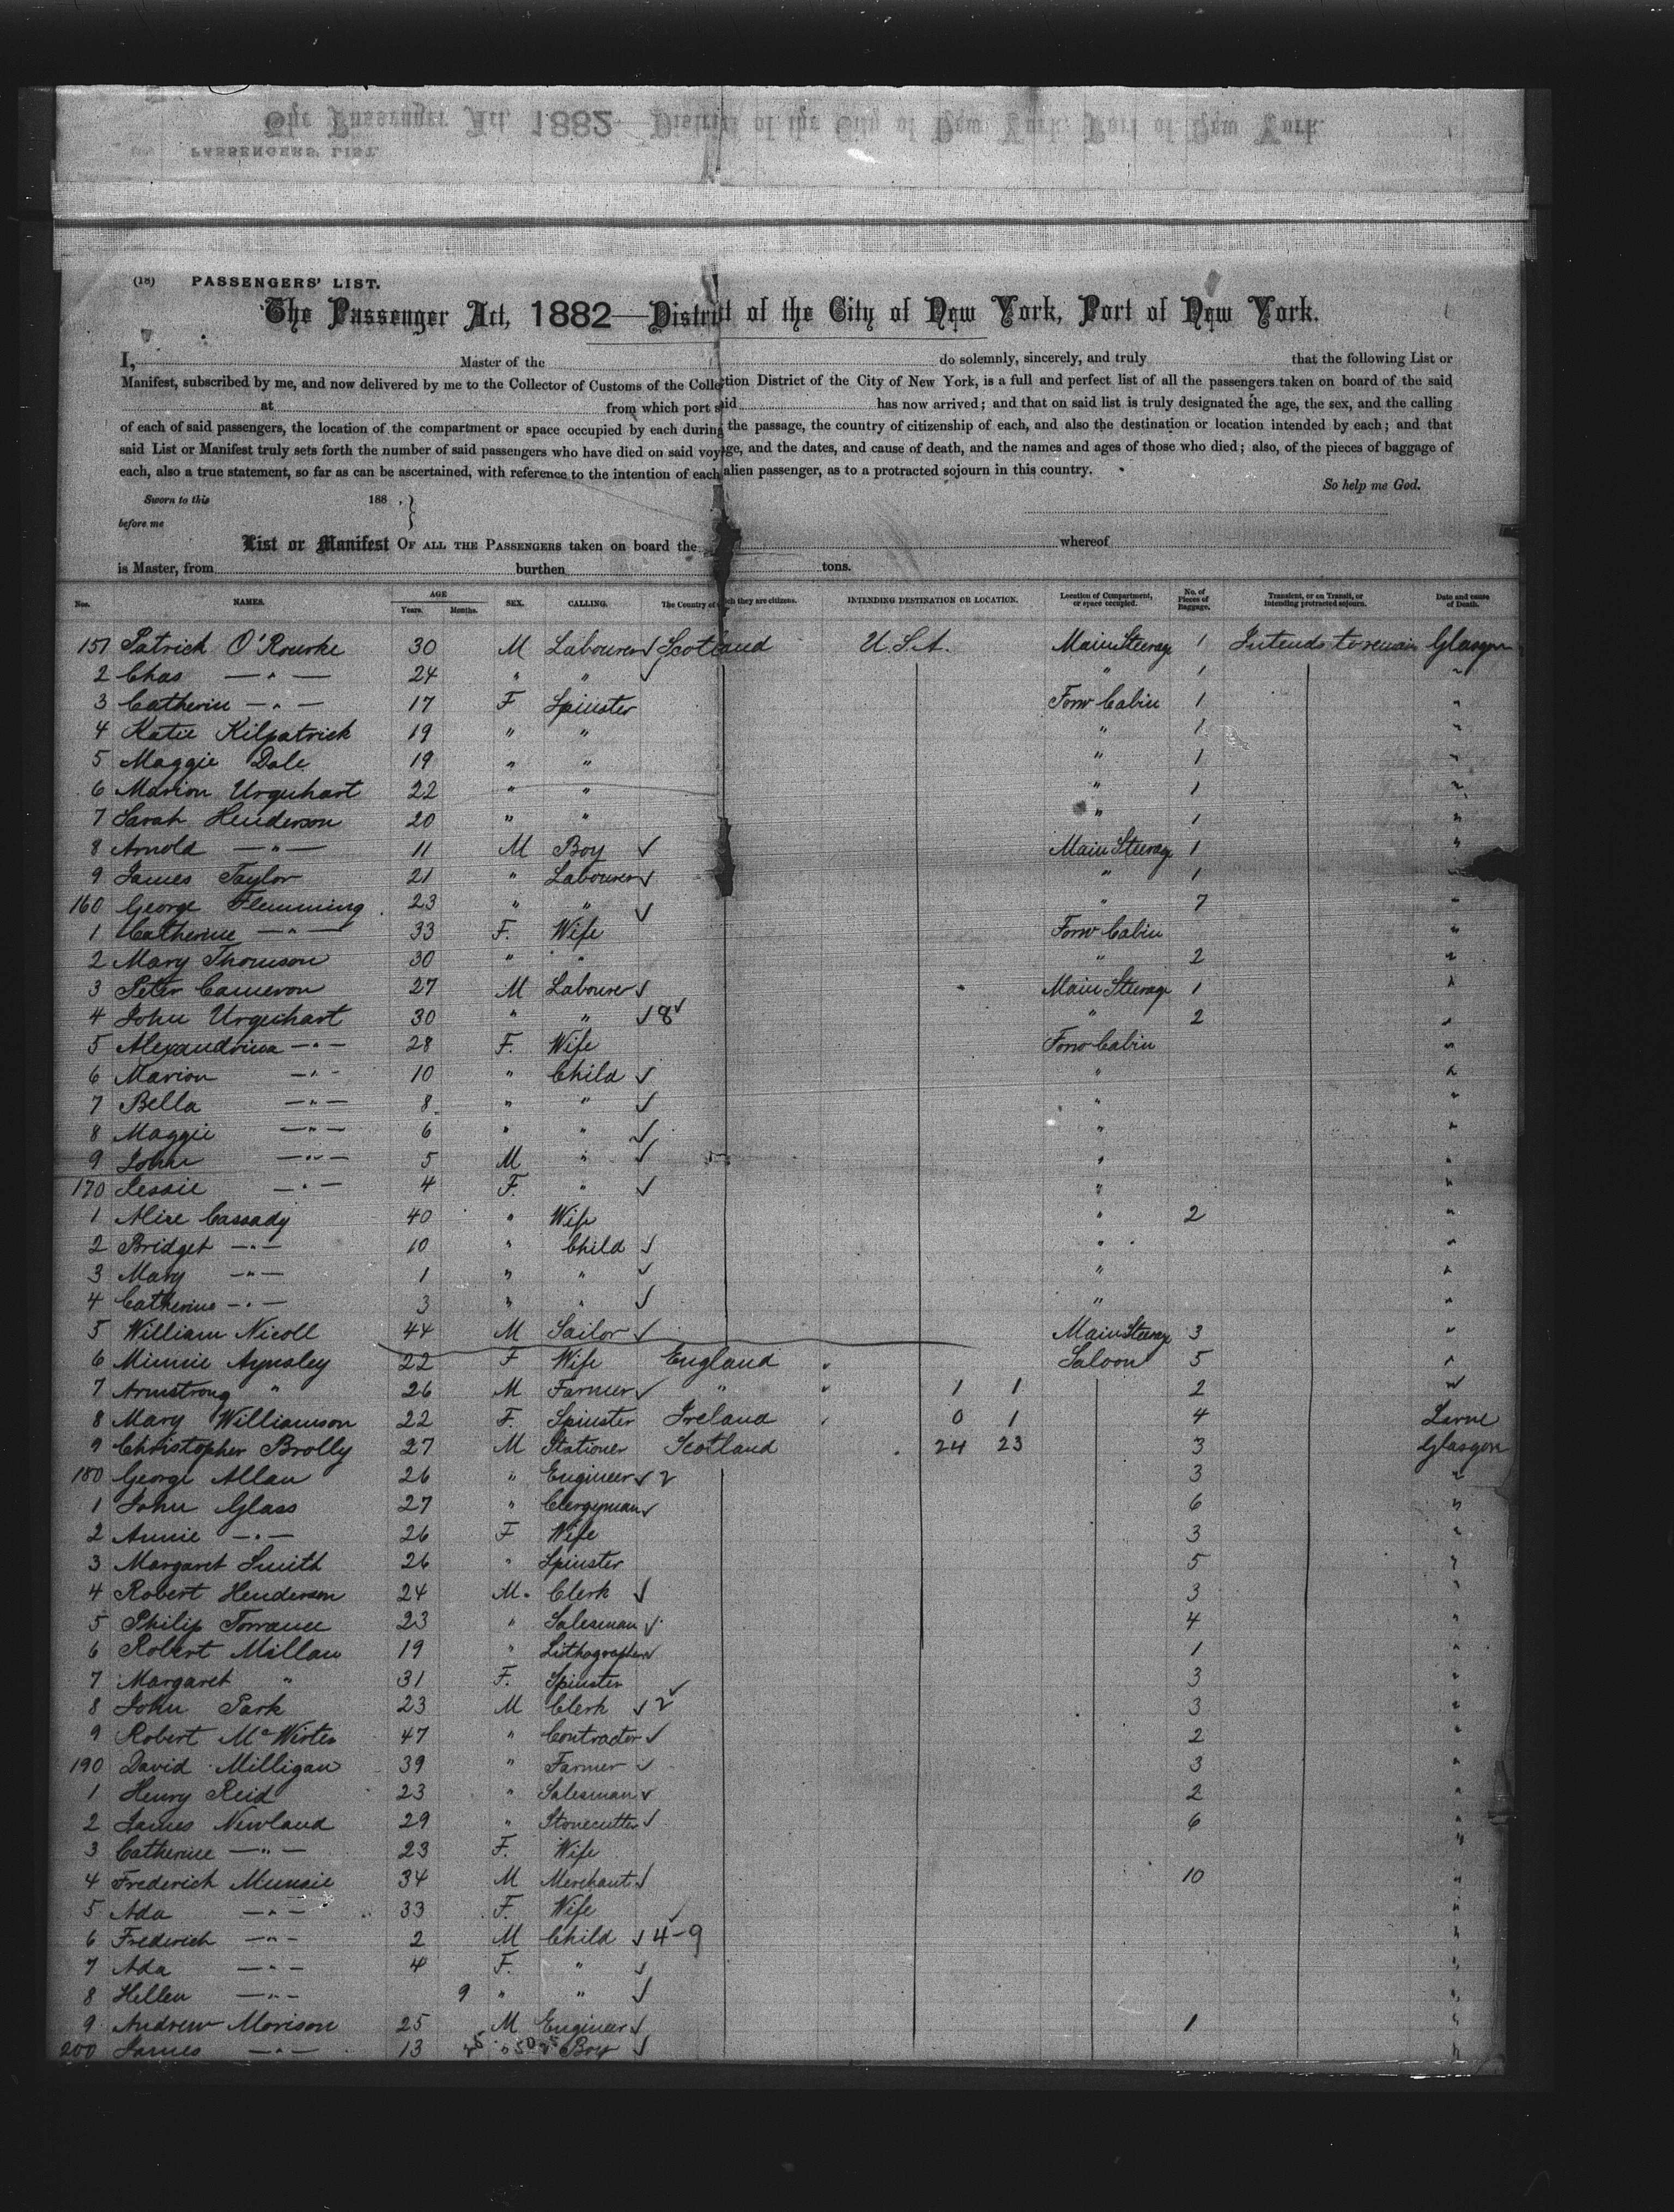 The Passenger Act, 1882—District of the City of New York, Port of New York.
PASSENGERS' LIST.
(18) PASSENGERS' LIST.
The Passenger Act, 1882—District of the City of New York, Port of New York.
I, Master of the do solemnly, sincerely, and truly that the following List or
Manifest, subscribed by me, and now delivered by me to the Collector of Customs of the Collection District of the City of New York, is a full and perfect list of all the passengers taken on board of the said
at from which port said has now arrived; and that on said list is truly designated the age, the sex, and the calling
of each of said passengers, the location of the compartment or space occupied by each during the passage, the country of citizenship of each, and also the destination or location intended by each; and that
said List or Manifest truly sets forth the number of said passengers who have died on said voyage, and the dates, and cause of death, and the names and ages of those who died; also, of the pieces of baggage of
each, also a true statement, so far as can be ascertained, with reference to the intention of each alien passenger, as to a protracted sojourn in this country.
So help me God.
Sworn to this 188 .}
before me
List or Manifest OF ALL THE PASSENGERS taken on board the whereof
is Master, from burthen tons.
Nos. NAMES. AGE Years. Months. SEX. CALLING. The Country of which they are citizens. INTENDING DESTINATION OR LOCATION. Location of Compartment, or space occupied. No. of Pieces of Baggage. Transient, or on Transit, or intending protracted sojourn. Date and cause of Death.
151 Patrick O'Rourke 30 M Labourer ✓ Scotland U.S.A. Main Steerage 1 Intends to remain Glasgow
2 Chas —"— 24 " " ✓ " 1 "
3 Catherin —"— 17 F Spinster Forw Cabin 1 "
4 Katie Kilpatrick 19 " " " 1 "
5 Maggie Dale 19 " " " 1 "
6 Marion Urquhart 22 " " " 1 "
7 Sarah Henderson 20 " " " 1 "
8 Arnold —"— 11 M Boy ✓ Main Steerage 1 "
9 James Taylor 21 " Labourer ✓ " 1 "
160 George Flemming 23 " " ✓ " 7 "
1 Catherine —"— 33 F. Wife Forw Cabin "
2 Mary Thomson 30 " " " 2 "
3 Peter Cameron 27 M Labourer ✓ Main Steerage 1 "
4 John Urquhart 30 " " ✓ 8 ✓ " 2 "
5 Alexandrina —"— 28 F. Wife Forw Cabin "
6 Marion —"— 10 " Child ✓ " "
7 Bella —"— 8 " " ✓ " "
8 Maggie —"— 6 " " ✓ " "
9 John —"— 5 M " ✓ " "
170 Jessie —"— 4 F. " ✓ " "
1 Alice Cassady 40 " Wife " 2 "
2 Bridget —"— 10 " Child ✓ " "
3 Mary —"— 1 " " ✓ " "
4 Catherine —"— 3 " " ✓ " "
5 William Nicoll 44 M Sailor ✓ Main Steerage 3 "
6 Minnie Aynsley 22 F Wife England " Saloon 5 "
7 Armstrong " 26 M Farmer ✓ " " 1 1 2 "
8 Mary Williamson 22 F. Spinster Ireland " 0 1 4 Larne
9 Christopher Brolly 27 M Stationer Scotland 24 23 3 Glasgow
180 George Allan 26 " Engineer ✓ 2 3 "
1 John Glass 27 " Clergyman ✓ 6 "
2 Annie —"— 26 F Wife 3 "
3 Margaret Smith 26 " Spinster 5 "
4 Robert Henderson 24 M. Clerk ✓ 3 "
5 Philip Torrance 23 " Salesman ✓ 4 "
6 Robert Millan 19 " Lithographer ✓ 1 "
7 Margaret " 31 F. Spinster 3 "
8 John Park 23 M Clerk ✓ 2 ✓ 3 "
9 Robert Mc Wirter 47 " Contractor ✓ 2 "
190 David Milligan 39 " Farmer ✓ 3 "
1 Henry Reid 23 " Salesman ✓ 2 "
2 James Newland 29 " Stonecutter ✓ 6 "
3 Catherine —"— 23 F. Wife "
4 Frederick Munsie 34 M Merchant ✓ 10 "
5 Ada —"— 33 F. Wife "
6 Frederich —"— 2 M Child ✓ 4-9 ✓ "
7 Ada —"— 4 F. " ✓ "
8 Hellen —"— 9 " " ✓ "
9 Andrew Morison 25 M Engineer ✓ 1 "
200 James —"— 13 " Boy ✓ "